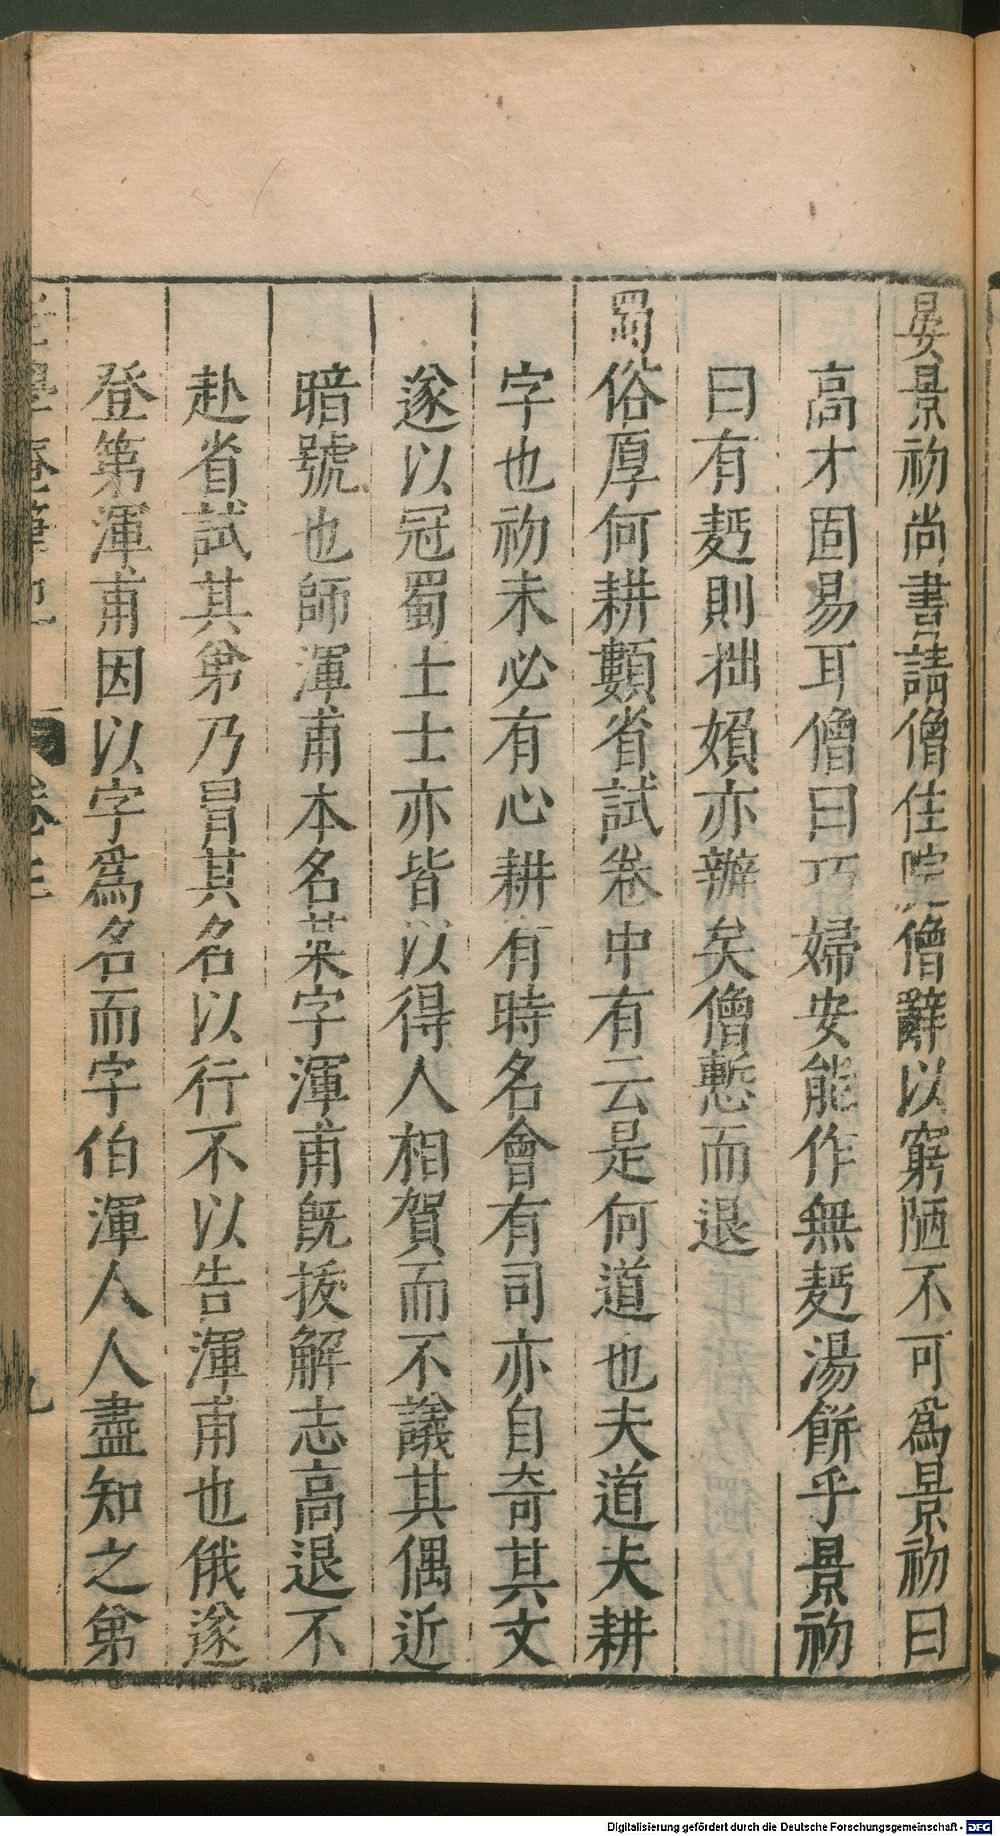 晏景初尚書請僧住院僧辭以窮陋不可爲景初曰
高才固易耳僧曰巧婦安能作無麪湯餅乎景初
曰有麪則拙嬾亦辦矣僧慙而退
蜀俗厚何耕類省試卷中有云是何道也夫道夫耕
字也初未必有心耕有時名會有司亦自奇其文
遂以冠蜀士士亦皆以得人相賀而不議其偶近
暗號也師渾甫本名某字渾甫既拔解志高退不
赴省試其弟乃冒其名以行不以告渾甫也俄遂
登第渾甫因以字爲名而字伯渾人人盡知之弟
老學庵筆記 卷三 九
Digitalisierung gefördert durch die Deutsche Forschungsgemeinschaft - DFG